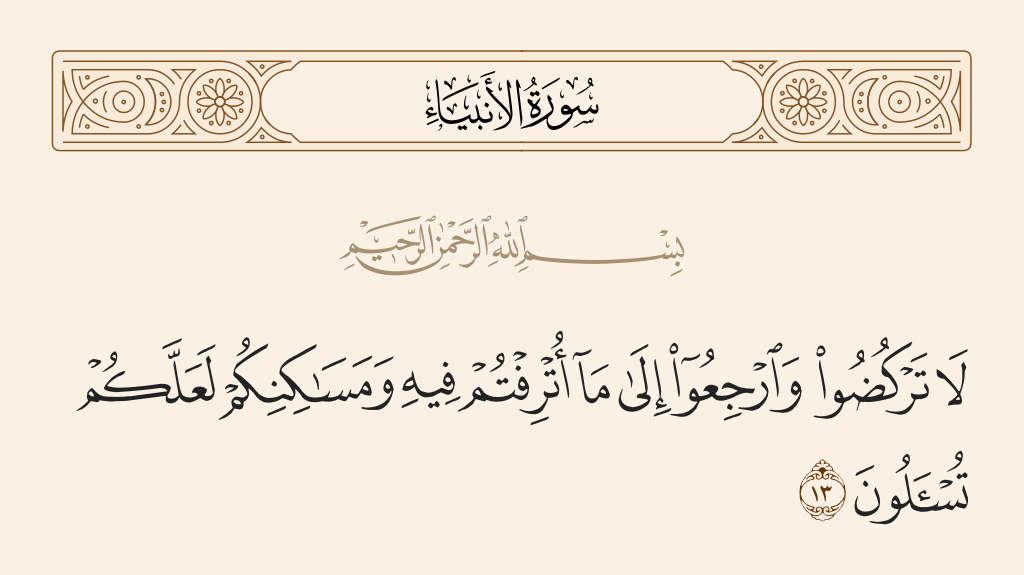 سُورَةُ الأَنبِيَاءِ
بِسْمِ ٱللَّهِ ٱلرَّحْمَٰنِ ٱلرَّحِيمِ
لَا تَرْكُضُوا۟ وَٱرْجِعُوٓا۟ إِلَىٰ مَآ أُتْرِفْتُمْ فِيهِ وَمَسَـٰكِنِكُمْ لَعَلَّكُمْ
تُسْـَٔلُونَ ١٣